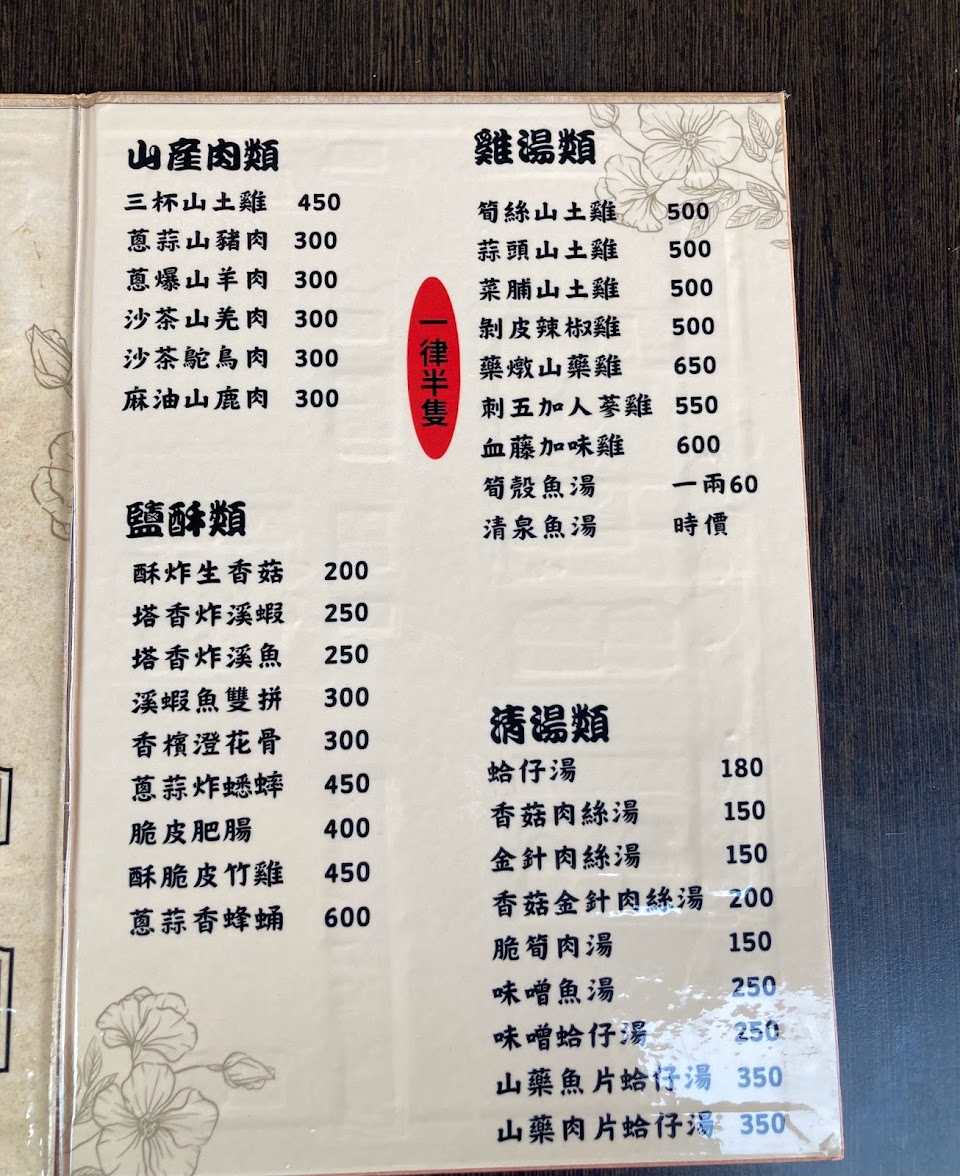 山産肉類
三杯山土雞 450
蔥蒜山豬肉 300
蔥爆山羊肉 300
沙茶山羌肉 300
沙茶鴕鳥肉 300
麻油山鹿肉 300
鹽酥類
酥炸生香菇 200
塔香炸溪蝦 250
塔香炸溪魚 250
溪蝦魚雙拼 300
香檳澄花骨 300
蔥蒜炸蟋蟀 450
脆皮肥腸 400
酥脆皮竹雞 450
蔥蒜香蜂蛹 600
一律半隻
雞湯類
筍絲山土雞 500
蒜頭山土雞 500
菜脯山土雞 500
剝皮辣椒雞 500
藥燉山藥雞 650
刺五加人蔘雞 550
血藤加味雞 600
筍殼魚湯 一兩60
清泉魚湯 時價
清湯類
蛤仔湯 180
香菇肉絲湯 150
金針肉絲湯 150
香菇金針肉絲湯 200
脆筍肉湯 150
味噌魚湯 250
味噌蛤仔湯 250
山藥魚片蛤仔湯 350
山藥肉片蛤仔湯 350